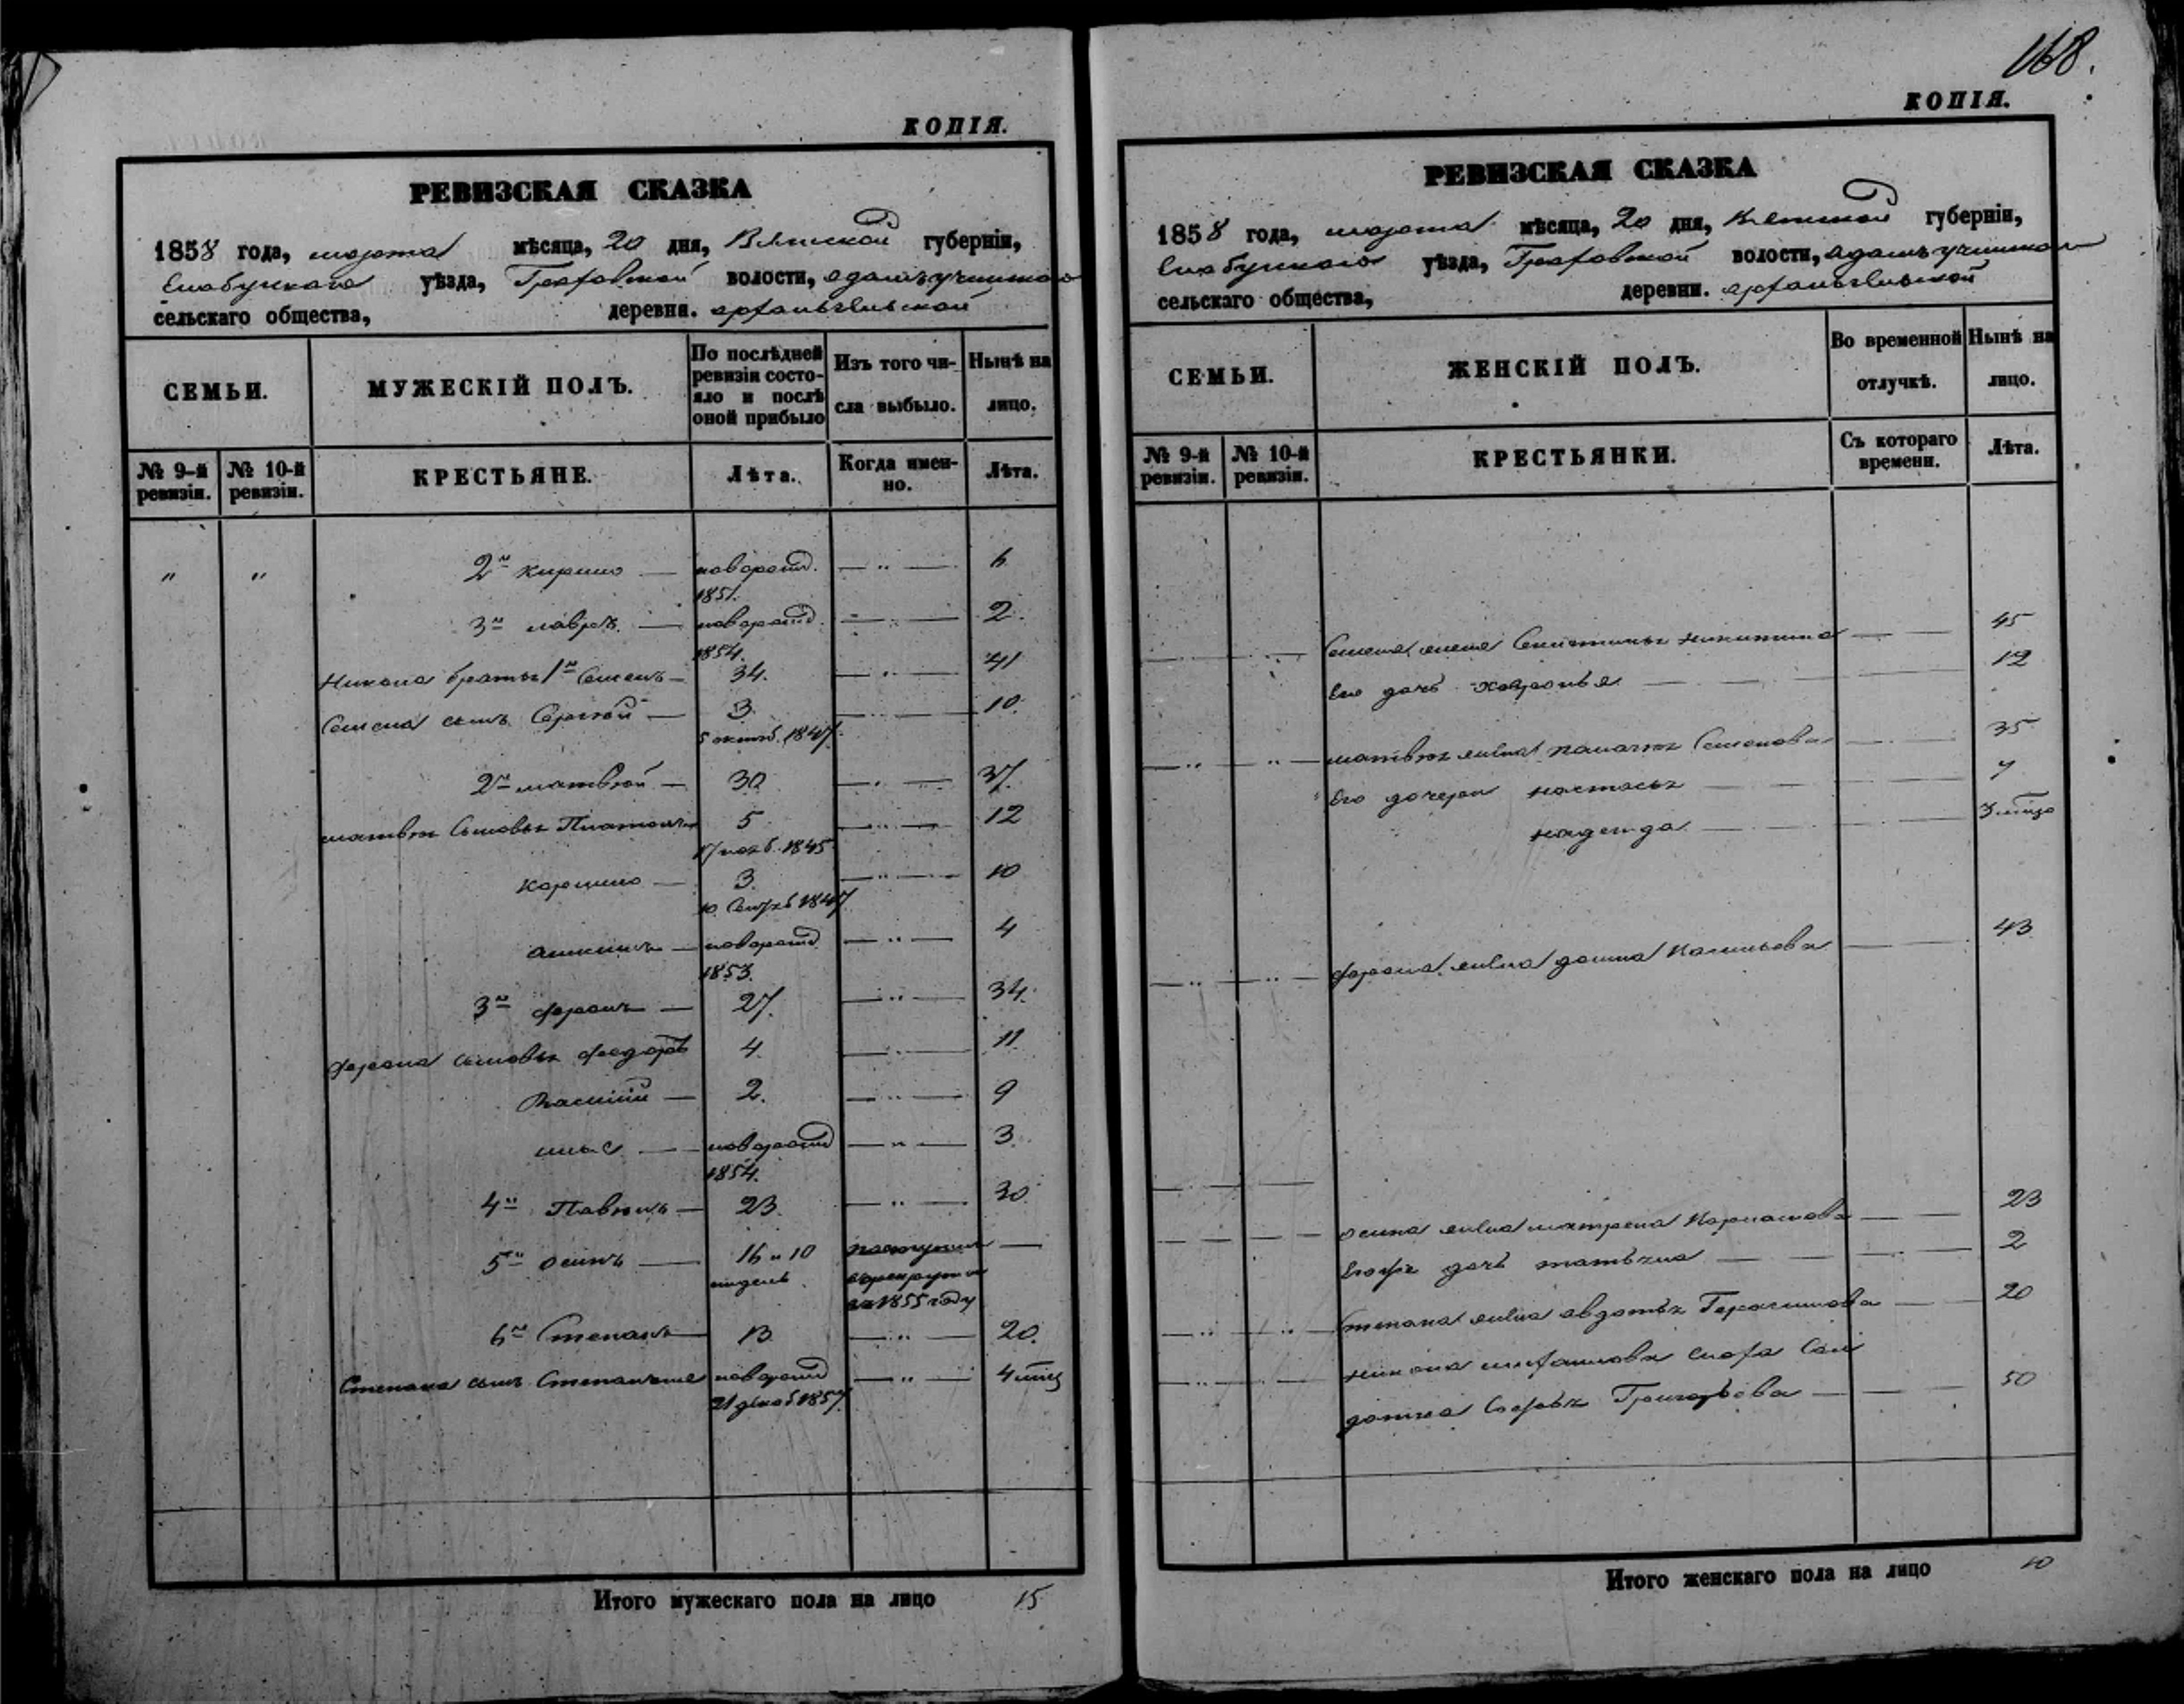 168.
КОПІЯ.
РЕВИЗСКАЯ СКАЗКА
1858 года, марта мѣсяца, 20 дня, Вятской губерніи,
Елабужскаго уѣзда, Граховской волости,
сельскаго общества, деревни. Архангельской
СЕМЬИ.
МУЖЕСКІЙ ПОЛЪ.
По послѣдней ревизіи состояло и послѣ оной прибыло
Изъ того числа выбыло.
Нынѣ на лицо.
№ 9-й ревизіи.
№ 10-й ревизіи.
КРЕСТЬЯНЕ.
Лѣта.
Когда именно.
Лѣта.
" " 2й Кирило — новорожд. 1851. — " — 6
3й Лавръ — новорожд. 1854. — " — 2.
Никона братья 1й Семенъ — 34. — " — 41
Семена сынъ Сергѣй — 3 5 октяб. 1847. — " — 10.
2й Матвѣй — 30 — " — 37.
Матвѣя сыновья Платонъ 5 17 нояб. 1845 — " — 12
3. 10 Сентяб 1847 — " — 10
новорожд 1853. — " — 4
3й Фаронъ — 27. — " — 34.
Фарона сыновья Федоръ 4. — " — 11
Василій — 2. — " — 9
Илья — новорожд 1854. — " — 3.
4й Павелъ — 23 — " — 30
5й Осипъ — 16 и 10 недель поступилъ в рекруты в 1855 году —
6й Степанъ — 13 — " — 20.
Степана сынъ новорожд 21 декаб. 1857. — " — 4 мѣс
Итого мужескаго пола на лицо 15
КОПІЯ.
РЕВИЗСКАЯ СКАЗКА
1858 года, марта мѣсяца, 20 дня, Вятской губерніи,
Елабужскаго уѣзда, Граховской волости,
сельскаго общества, деревни. Архангельской
СЕМЬИ.
ЖЕНСКІЙ ПОЛЪ.
Во временной отлучкѣ.
Нынѣ на лицо.
№ 9-й ревизіи.
№ 10-й ревизіи.
КРЕСТЬЯНКИ.
Съ котораго времени.
Лѣта.
Семена жена Никитина — 45
Его дочь Хавронья — 12
Матвѣя жена Пелагея Семенова — 35
Его дочери Настасья — 7
Надежда — 3 мѣсяц
Фарона жена Домна — 43
Осипа жена Матрена — 23
дочь Татьяна — 2
Степана жена Авдотья Герасимова — 20
Никона сноха Сол
датка Софья Григорьева — 50
Итого женскаго пола на лицо 10